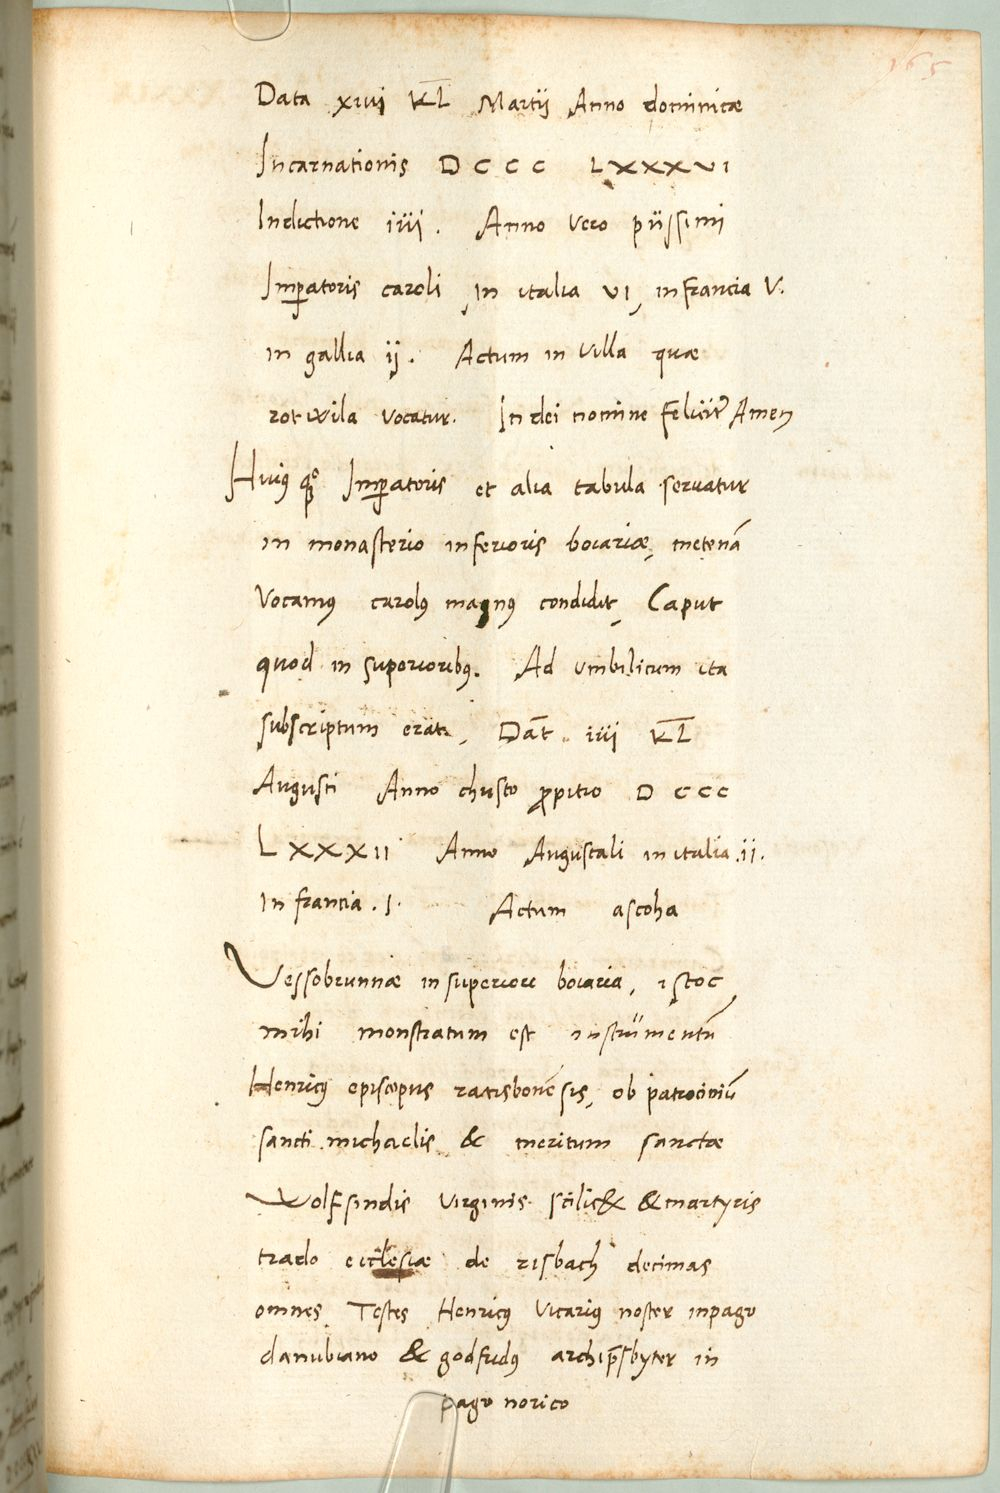 165
Data xiiii KL Martij Anno dominicæ
Incarnationis D C C C LXXXVI
Indictione iiii. Anno vero piissimi
Imꝑatoris caroli in italia VI, in francia V.
in gallia ij. Actum in villa quæ
rotwila vocatur. In dei nomine feliciter Amen
Huiꝰ qꝫ Imꝑatoris et alia tabula servatur
in monasterio inferioris boiariæ, metenā
vocamꝰ carolꝰ magnꝰ condidit, Caput
quod in superioribꝰ. Ad vmbilicum ita
subscriptum erat, Dāt. iiii KL
Augusti Anno christo ꝓpitio D C C C
LXXXII Anno Augustali in italia .ii.
In francia .I. Actum ascoha
Vessobrunnæ in superiore boiaria, istoc
mihi monstratum est instrumentū
Henricꝰ episcopus ratisbonēsis, ob patrociniū
sancti michaelis & meritum sanctæ
Wolfsindis virginis scilic& & martyris
trado ecclesiæ de risbach decimas
omnes. Testes Henricꝰ vicariꝰ noster in pago
danubiano & godfridꝰ archip̄sbyter in
pago norico